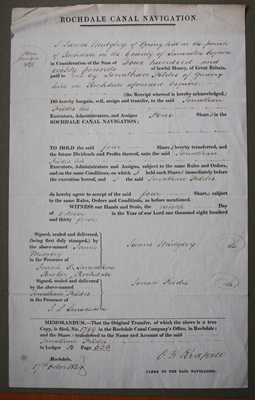 ROCHDALE CANAL NAVIGATION.
I James Midgley of Spring hill in the parish
of Rochdale in the County of Lancaster Esquire
in Consideration of the Sum of Four hundred and
eighty pounds of lawful Money of Great Britain,
paid to me by Jonathan Fildes of
in Rochdale aforesaid Esquire
(the Receipt whereof is hereby acknowledged,)
DO hereby bargain, sell, assign and transfer, to the said Jonathan
Fildes his
Executors, Administrators, and Assigns Four Shares in the
ROCHDALE CANAL NAVIGATION;
TO HOLD the said four Shares hereby transferred, and
the future Dividends and Profits thereof, unto the said Jonathan
Fildes his
Executors, Administrators and Assigns, subject to the same Rules and Orders,
and on the same Conditions, on which I held such Shares immediately before
the execution hereof, and I the said Jonathan Fildes
do hereby agree to accept of the said four Shares, subject
to the same Rules, Orders, and Conditions, as before mentioned.
WITNESS our Hands and Seals, the Day
of in the Year of our Lord one thousand eight hundred
and thirty four.
Signed, sealed and delivered,
(being first duly stamped,) by
the abovenamed James
Midgley
James Midgley
in the Presence of
Rochdale
Signed, sealed and delivered
by the abovenamed
Jonathan Fildes
Jonan Fildes
in the Presence of
MEMORANDUM.—That the Original Transfer, of which the above is a true
Copy, is filed, No. 1789 in the Rochdale Canal Company's Office, in Rochdale;
and the Shares transferred to the Name and Account of the said
Jonathan Fildes
in Ledger B Page 626
Rochdale,
17th Octr 1834
CLERK TO THE SAID NAVIGATION.